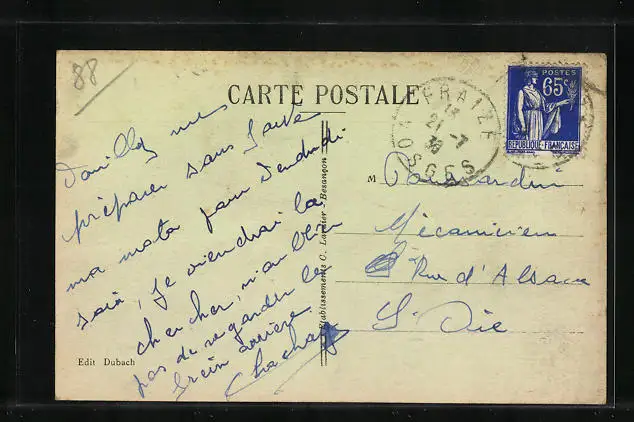 88
CARTE POSTALE
FRAIZE
13
21 -7
38
VOSGES
POSTES
65c
REPUBLIQUE FRANCAISE
Veuillez me
préparer sans faute
ma moto pour Vendredi
soir, je viendrai la
chercher, n'oubliez
pas de regarder le
frein arrière.
M
Mécanicien
Rue d'Alsace
St Dié
Etablissements C. - Besançon
Edit Dubach